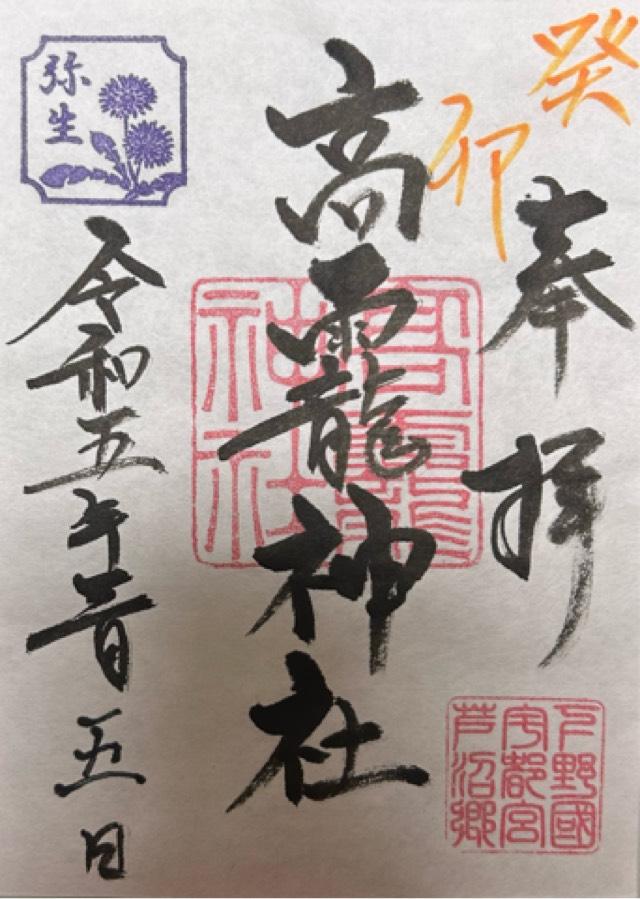 癸卯
奉拝
高龗神社
高龗
神社
下野國
宇都宮
芦沼郷
弥生
令和五年三月五日